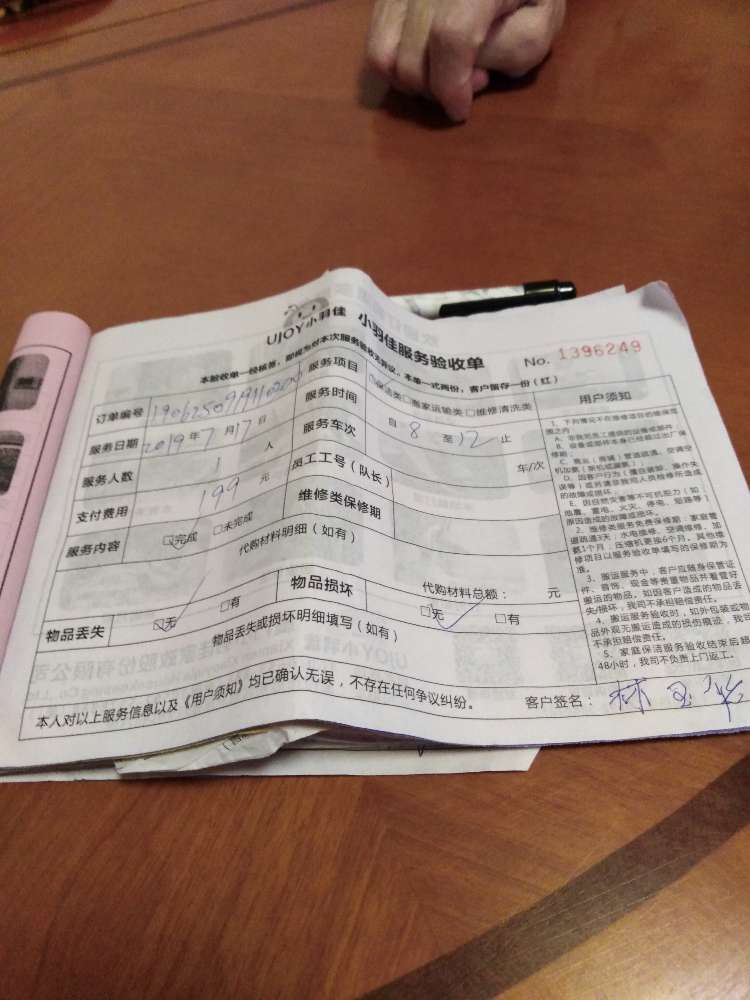 UJOY小羽佳
小羽佳服务验收单
No. 1396249
本验收单一经核签，即视为对本次服务验收无异议。本单一式两份，客户留存一份（红）
订单编号
服务项目 保洁类 □搬家运输类 □维修清洗类
服务日期 2019年7月17日
服务时间 自 8 至 12 止
服务人数 1 人
服务车次 车/次
支付费用 199 元
员工工号（队长）
服务内容 □完成 □未完成
维修类保修期
代购材料明细（如有）
代购材料总额： 元
物品丢失 □无 □有
物品损坏 □无 □有
物品丢失或损坏明细填写（如有）
用户须知
1、下列情况不在维修项目的维保范
围之内
A、非我司员工提供的设备或部件
B、设备或部件本身已经超过出厂保
修期；
C、商业（商铺）管道疏通、空调空
机加氨（新机或漏氨）；
D、因客户行为（擅自装卸、操作失
误等）或另请非我司人员检修所造成
的故障或损坏；
E、因自然灾害等不可抗拒力（如
地震、雷电、火灾、停电、短路等）
原因造成的故障或损坏。
2、维修类服务免费保修期：家庭管
道疏通3天；水电维修、空调维修、加
氨1个月；压缩机更换6个月，其他维
修项目以服务验收单填写的保修期为
准。
3、搬运服务中，客户应随身保管证
件、首饰、现金等贵重物品并看管好
搬运的物品。如因客户造成的物品丢
失/损坏，我司不承担赔偿责任。
4、搬运服务验收时，如外包装或物
品外观无搬运造成的损伤痕迹，我司
不承担赔偿责任。
5、家庭保洁服务验收结束后超
48小时，我司不负责上门返工。
本人对以上服务信息以及《用户须知》均已确认无误，不存在任何争议纠纷。
客户签名： 林玉